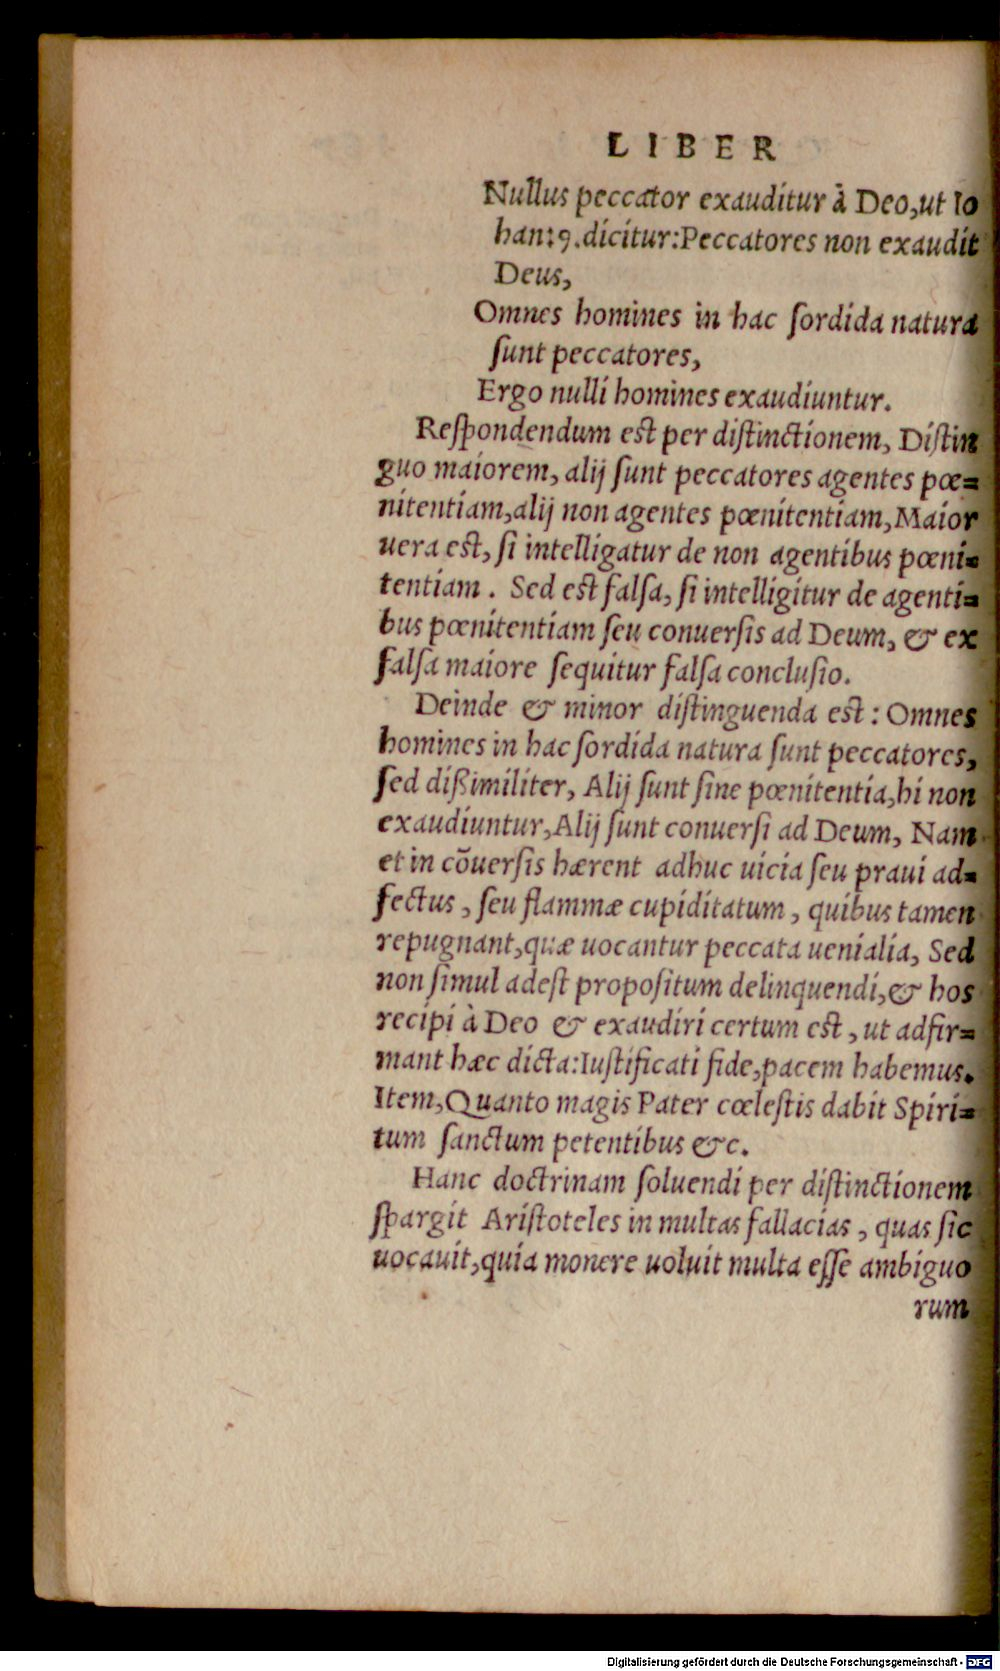 LIBER
Nullus peccator exauditur à Deo,ut Io
han:9.dicitur:Peccatores non exaudit
Deus,
Omnes homines in hac ſordida natura
ſunt peccatores,
Ergo nulli homines exaudiuntur.
Reſpondendum est per diſtinctionem, Diſtin
guo maiorem, alij ſunt peccatores agentes pœ=
nitentiam,alij non agentes pœnitentiam,Maior
uera est, ſi intelligatur de non agentibus pœni=
tentiam. Sed est falſa, ſi intelligitur de agenti=
bus pœnitentiam ſeu conuerſis ad Deum, & ex
falſa maiore ſequitur falſa concluſio.
Deinde & minor diſtinguenda est: Omnes
homines in hac ſordida natura ſunt peccatores,
ſed dißimiliter, Alij ſunt ſine pœnitentia,hi non
exaudiuntur,Alij ſunt conuerſi ad Deum, Nam
et in cōuerſis hærent adhuc uicia ſeu praui ad=
fectus, ſeu flammæ cupiditatum, quibus tamen
repugnant,quæ uocantur peccata uenialia, Sed
non ſimul adeſt propoſitum delinquendi,& hos
recipi à Deo & exaudiri certum est, ut adfir=
mant hæc dicta:Iuſtificati fide,pacem habemus.
Item,Quanto magis Pater cœleſtis dabit Spiri=
tum ſanctum petentibus &c.
Hanc doctrinam ſoluendi per diſtinctionem
ſpargit Ariſtoteles in multas fallacias, quas ſic
uocauit,quia monere uoluit multa eſſe ambiguo
rum
Digitalisierung gefördert durch die Deutsche Forschungsgemeinschaft - DFG